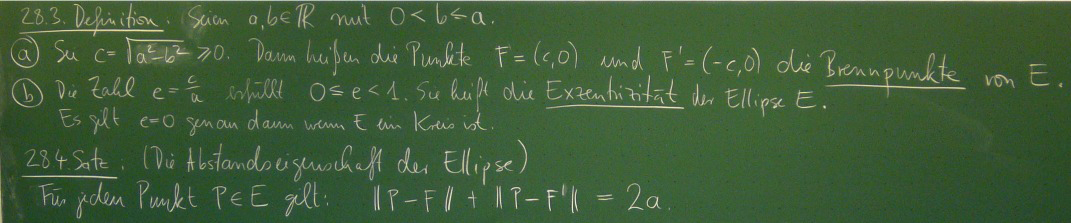 28.3. Definition. Seien a,b∈ℝ mit 0<b≤a.
(a) Sei c=√(a²-b²) ≥0. Dann heißen die Punkte F=(c,0) und F'=(-c,0) die Brennpunkte von E.
(b) Die Zahl e=c/a erfüllt 0≤e<1. Sie heißt die Exzentrizität der Ellipse E.
Es gilt e=0 genau dann wenn E ein Kreis ist.
28.4. Satz. (Die Abstandseigenschaft der Ellipse)
Für jeden Punkt P∈E gilt: ‖P-F‖ + ‖P-F'‖ = 2a.